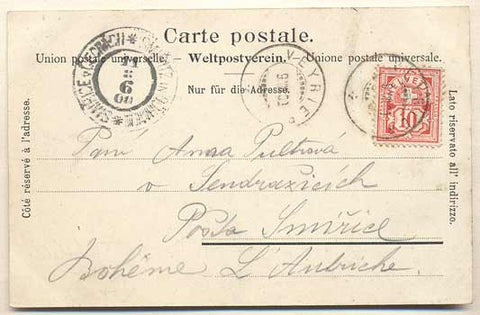 Carte postale.
Union postale universelle. Weltpostverein. Unione postale universale.
Nur für die Adresse.
Côté réservé à l'adresse.
Lato riservato all' indirizzo.
SMIŘICE V ČECHÁCH
11
6
00
VEYRIER
HELVETIA
10
Paní Anna Pultrová
v Sendražicích
Pošta Smiřice
Bohême L'Autriche.